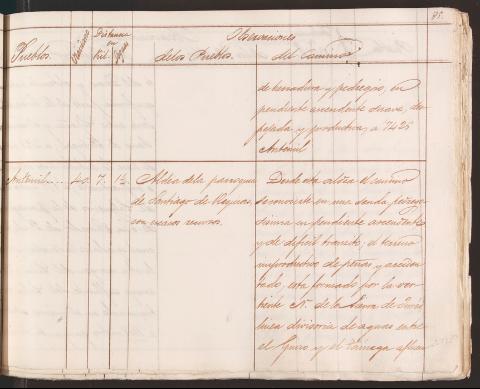 85.
Observaciones
Distancia
en
Pueblos. Vecinos Kil. Leguas de los Pueblos. del Camino
de herradura y pedregoso, en
pendiente ascendente suave, des
pejada y productiva; a 7425
Antenil
Antenil.... 40. 7. 1½. Aldea de la parroquia Desde esta aldea el camino
de Santiago de se convierte en una senda pedrego
con escasos recursos. sisima en pendiente ascendente
y de dificil transito; el terreno
improductivo de peñas y acciden
tado, esta formado por la ver
tiente N. de la Sierra de
linea divisoria de aguas entre
el y el Támaga